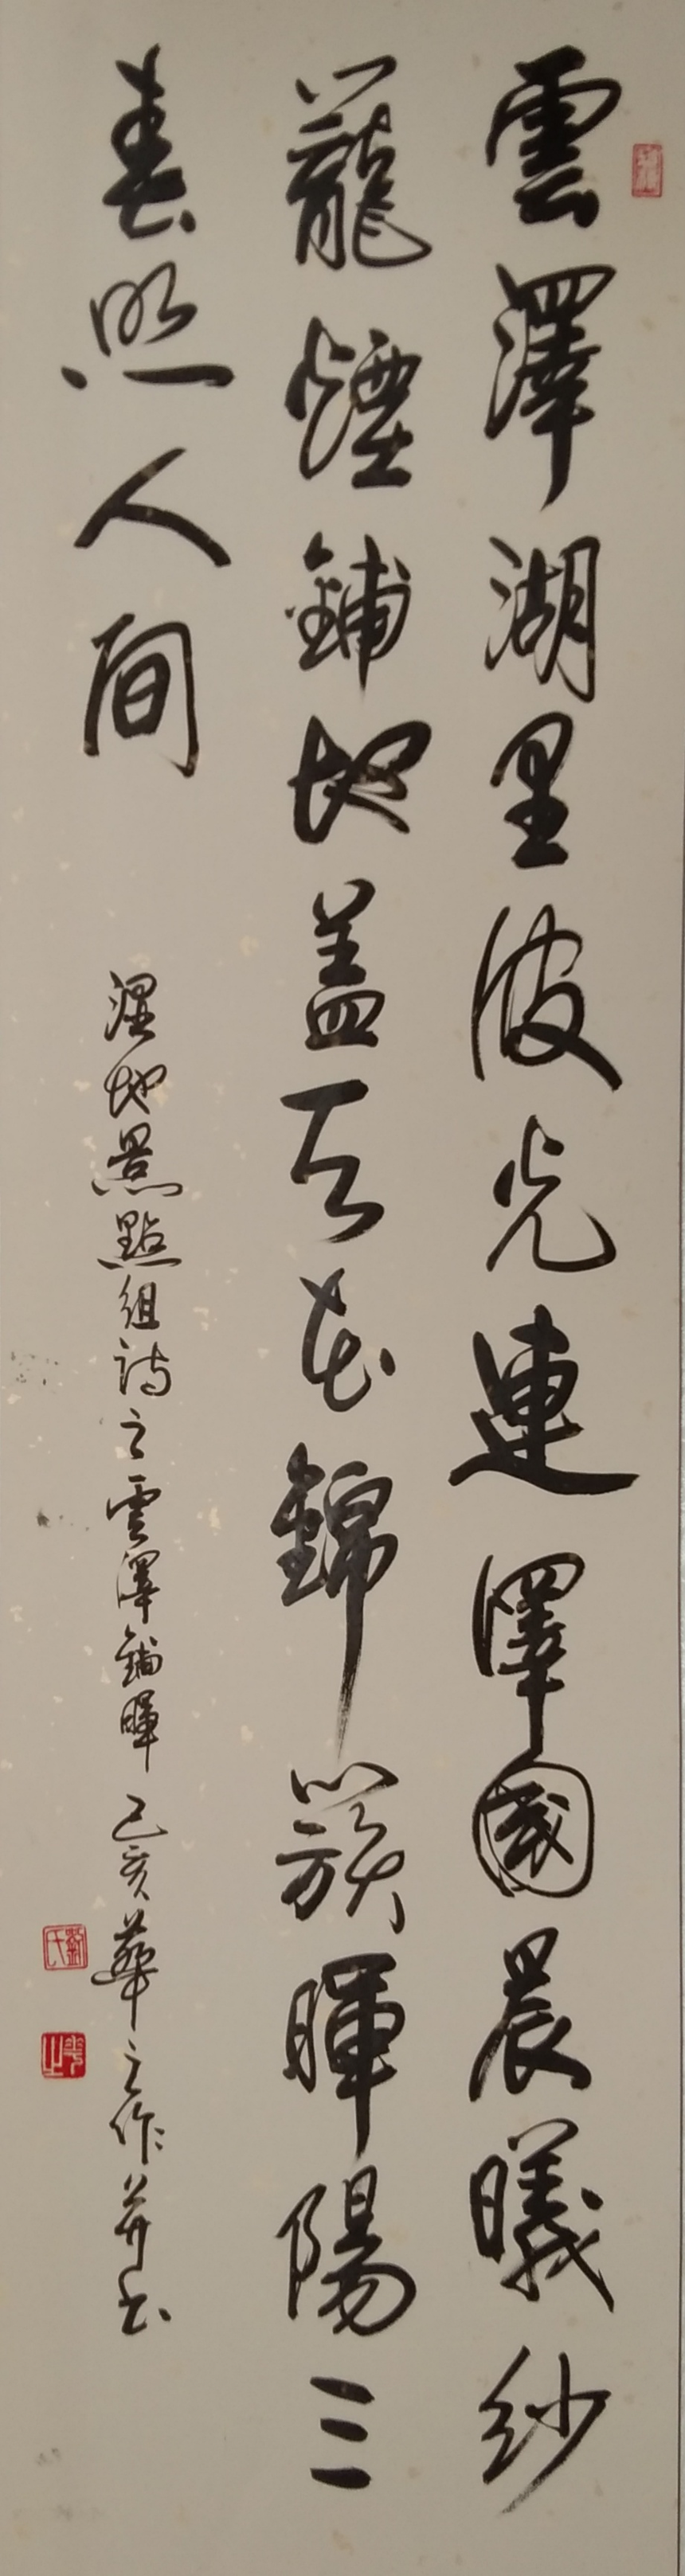 雲澤湖里波光連澤國晨曦紗
籠煙鋪地蓋天花錦簇暉陽三
春照人间
濕地景點組詩之雲澤鋪暉 己亥華之作并书
劉氏
華之